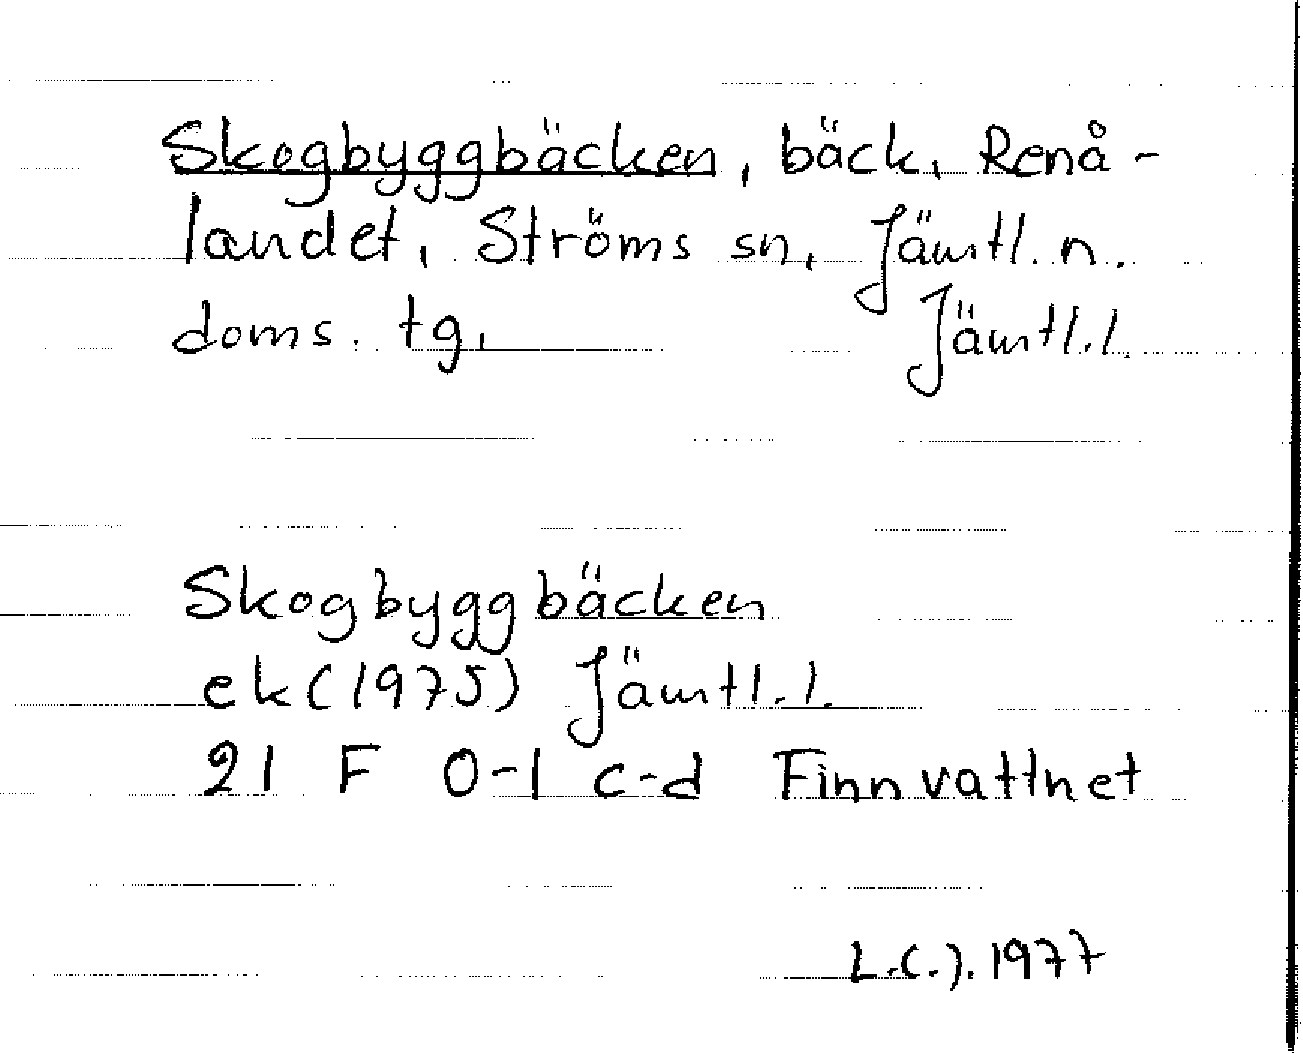 Skogbyggbäcken, bäck, Renå-
landet, Ströms sn, Jämtl. n.
doms. tg, Jämtl.l.
Skogbyggbäcken
ek(1975) Jämtl.l.
21 F 0-1 c-d Finnvattnet
L.C.J. 1977